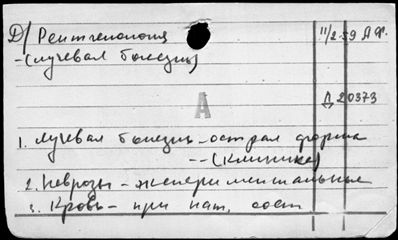 Д/ Рентгенология
-(лучевая болезнь)
11/2-59 А Ф.
А
Д 20373
1. Лучевая болезнь - острая форма
-- (клиника)
2. Неврозы - экспериментальные
3. Кровь - при пат. сост